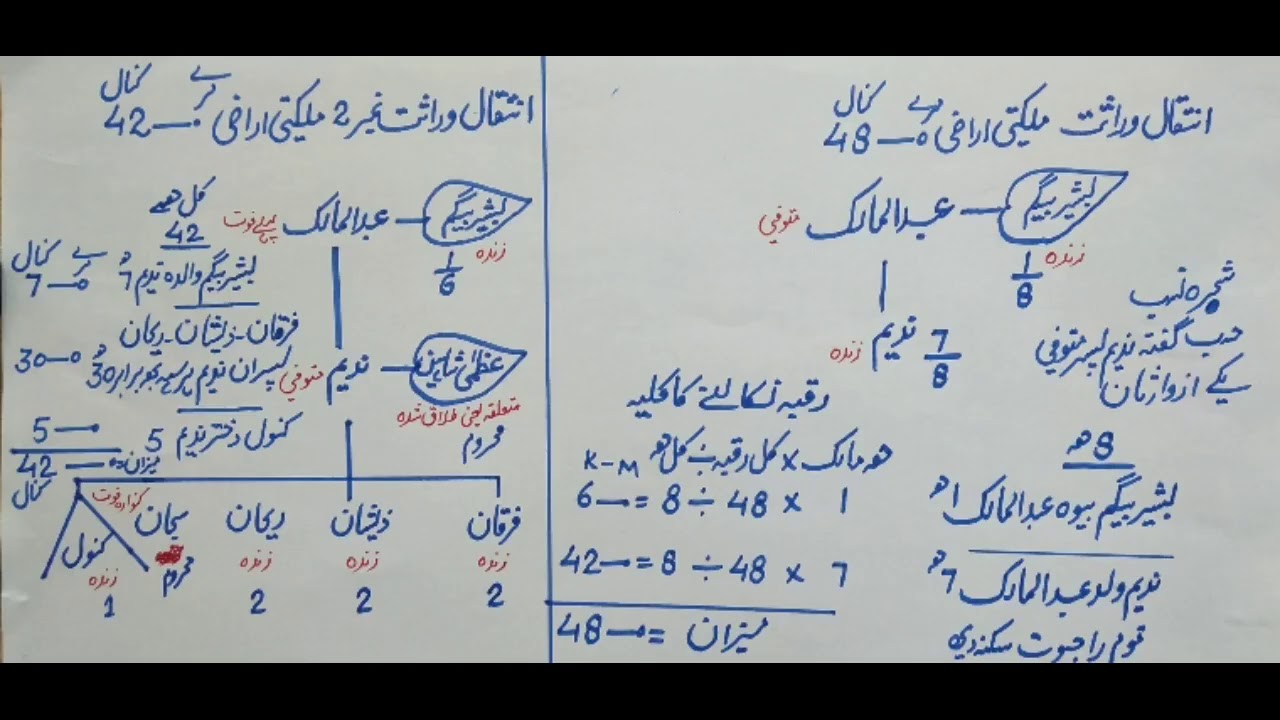 انتقال وراثت ملکیتی اراضی 0—48 کنال مرلے
بشیر بیگم — عبدالمالک متوفی
زندہ
1/8
ندیم 7/8
زندہ
شجرہ نسب
حسب گفتہ ندیم پسر متوفی
یکے از وارثان
8 حصے
بشیر بیگم بیوہ عبدالمالک 1 حصہ
ندیم ولد عبدالمالک 7 حصہ
قوم راجپوت سکنہ دیہہ
رقبہ نکالنے کا کلیہ
حصہ مالک × کل رقبہ ÷ کل حصے K-M
1 × 48 ÷ 8 = 6—0
7 × 48 ÷ 8 = 42—0
میزان = 48—0
انتقال وراثت نمبر 2 ملکیتی اراضی 0—42 کنال مرلے
بشیر بیگم — عبدالمالک پہلے فوت
زندہ
1/6
عظمیٰ شاہین — ندیم متوفی
متعلقہ یعنی طلاق شدہ
محروم
کل حصے
42
بشیر بیگم والدہ ندیم 7 حصہ 7—0 کنال مرلے
فرقان - ذیشان - ریحان
پسران ندیم برابر 30 حصہ 30—0
کنول دختر ندیم 5 5—0
میزان 42—0
کنال
فرقان ذیشان ریحان سبحان کنول
کنوارہ فوت
زندہ زندہ زندہ محروم زندہ
2 2 2 1